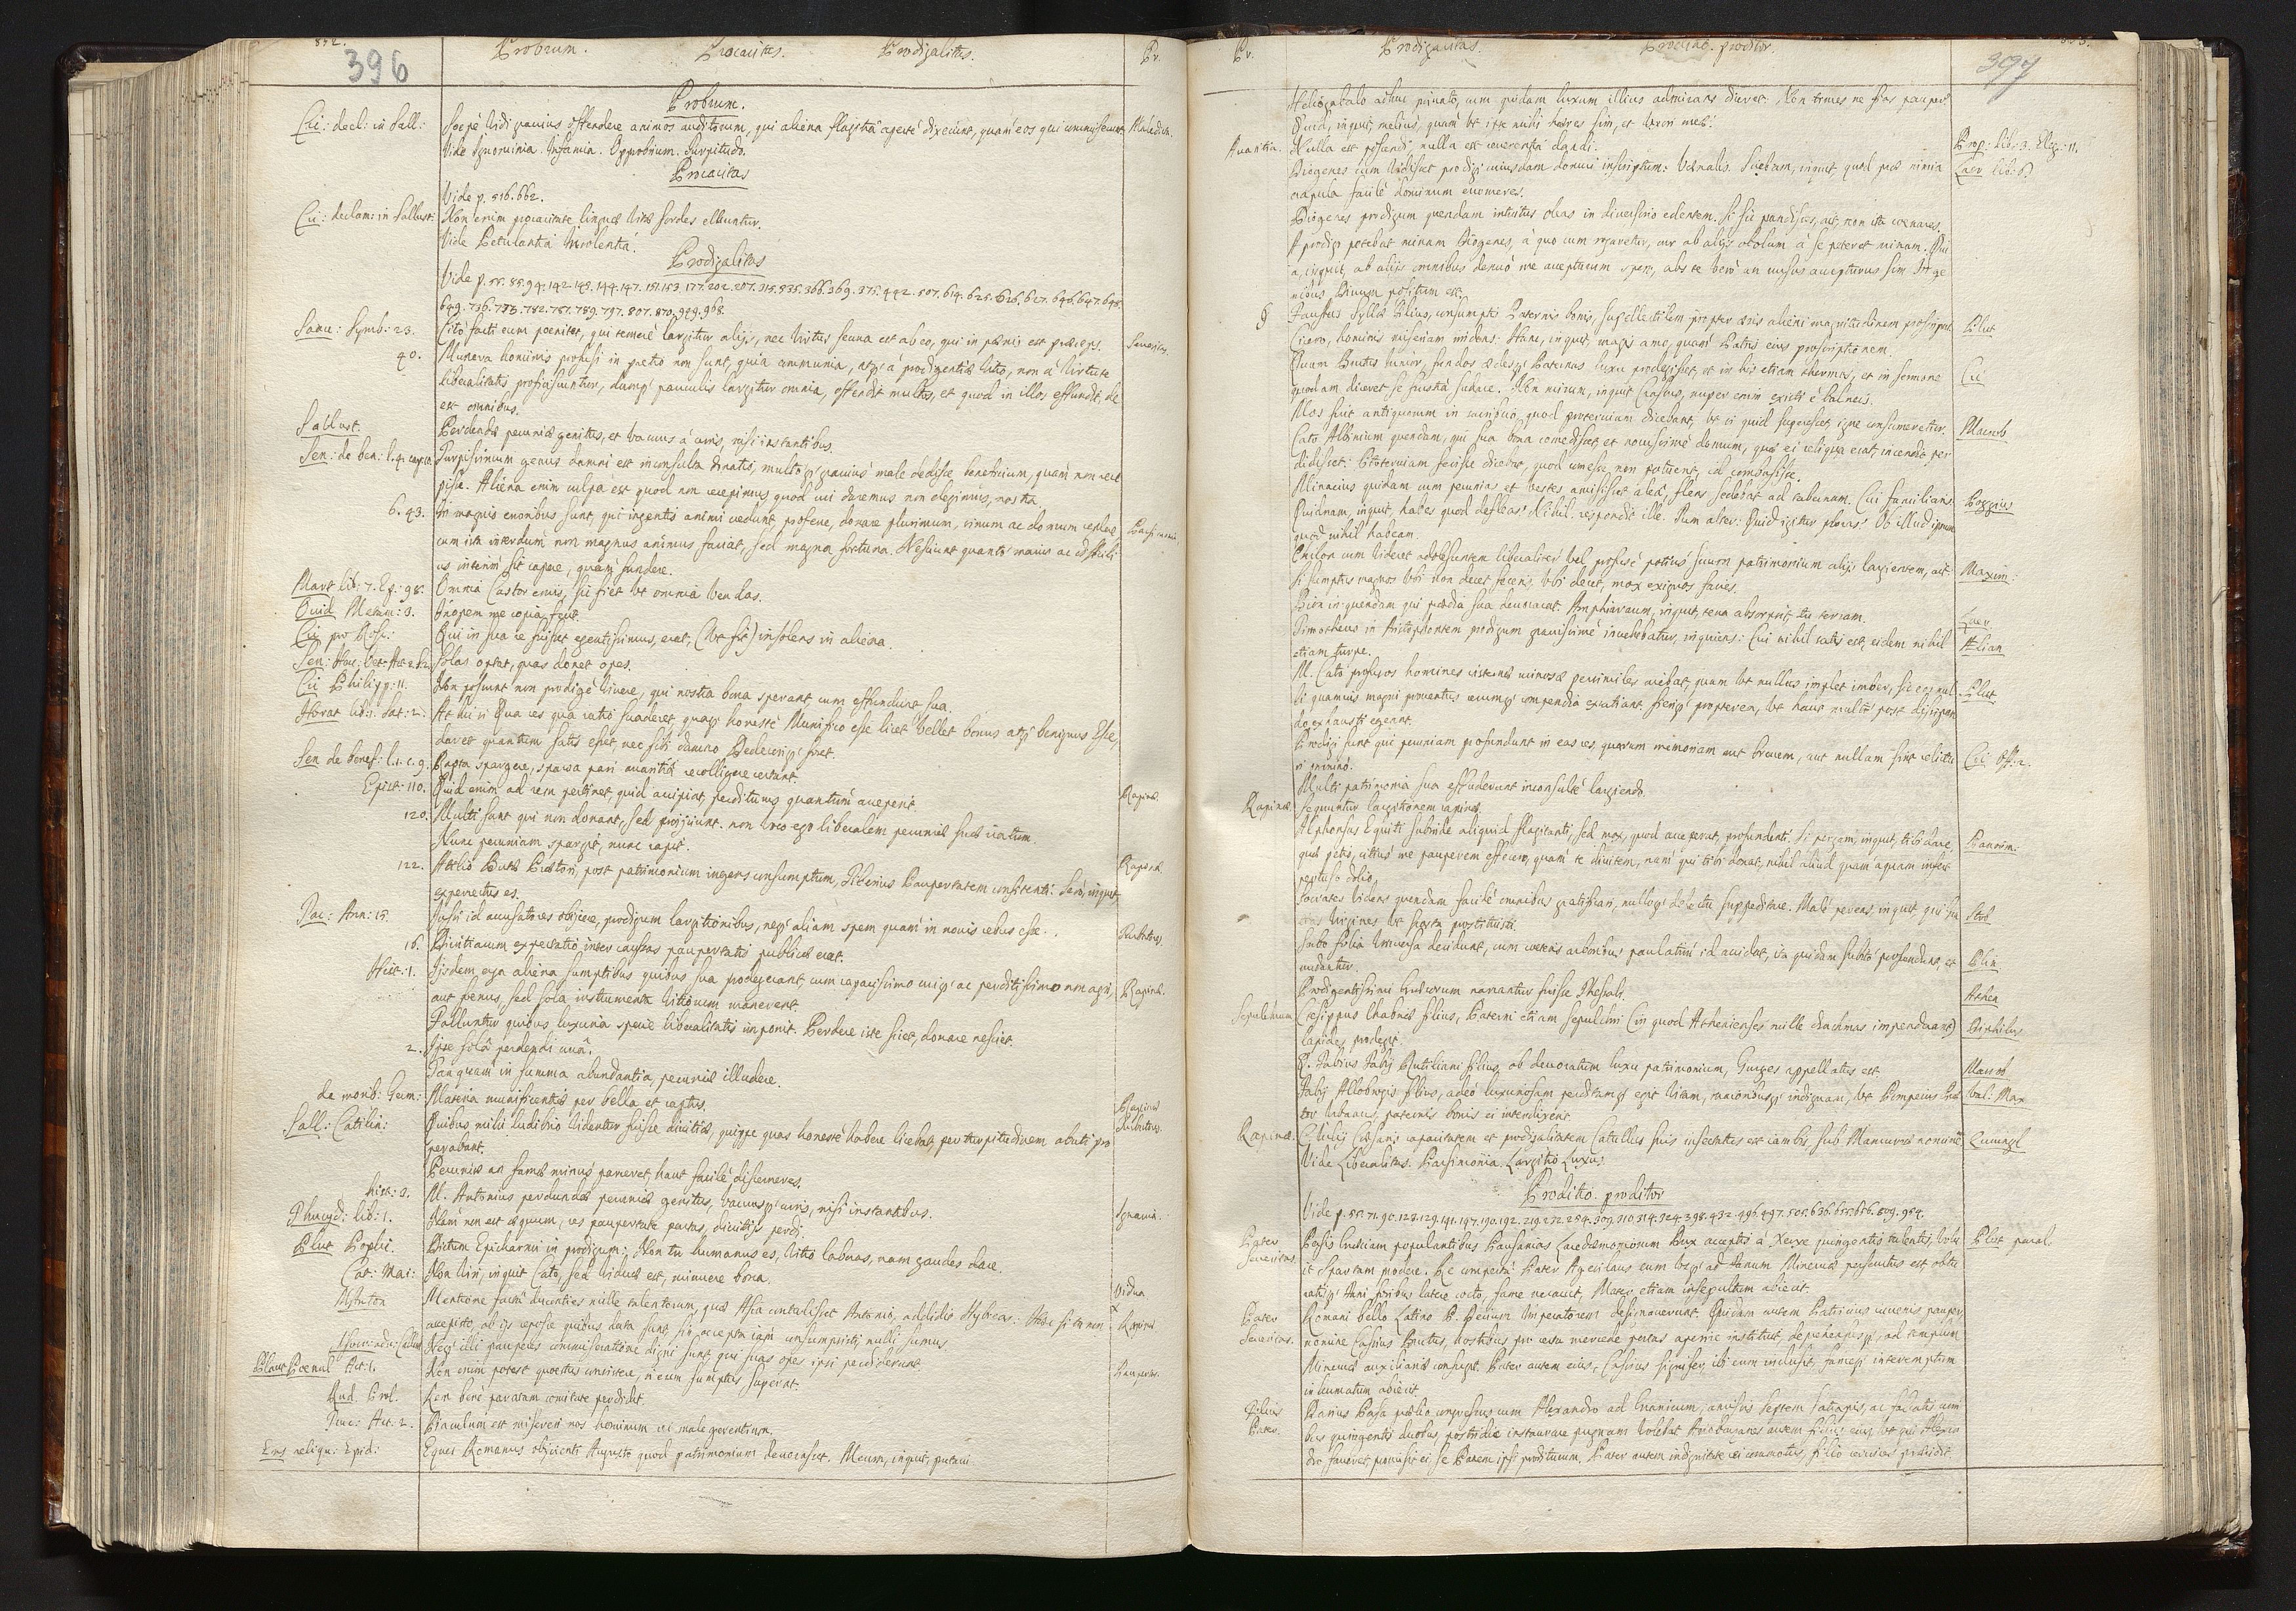 396
Probrum. Procacitas. Prodigalitas. Pr.
Probrum.
Cic: decl: in Sall: Saepè vidi gravius offendere animos auditorum, qui aliena flagitia apertè dixerunt, quàm eos qui commiserunt Maledic.
Vide Ignominia. Infamia. Opprobrium. Turpitudo.
Procacitas
Vide p. 516. 662.
Cic: declam: in Sallust: Non enim procacitate linguae vitae sordes elluuntur.
Vide Petulantia Violentia.
Prodigalitas
649. 736. 773. 782. 787. 789. 797. 807. 870. 949. 968.
Symb: 23. Citò facti eum poenitet, qui temerè largitur alijs, nec virtus serua est ab eo, qui in paenis est praeceps. Seueritas.
40. Munera hominis profusi in pretio non sunt, quia communia, atq; à prodigentiae vitio, non à virtute
liberalitatis proficiscuntur, dumq; paruulis largitur omnia, offendit multos, et quod in illos effundit, de
est omnibus.
Sallust. Perdendae pecuniae genitus, et vacuus à curis, nisi instantibus.
Sen: de ben: l. 4. Turpissimum genus damni est inconsulta donatio, multoq; grauius male dedisse beneficium, quàm non rece
pisse. Aliena enim culpa est quod non recepimus, quod cui daremus non elegimus, nostra.
6. 43. In magnis erroribus sunt, qui ingentis animi credunt proferre, donare plurimum, sinum ac domum replere,
cum ista interdum non magnus animus faciat, sed magna fortuna. Nesciunt quanto maius ac difficili
us interim sit capere, quàm fundere.
Mart lib: 7. Ep: 98. Omnia Castor emis, sic fiet ut omnia vendas.
Ouid Metam: 3. Inopem me copia fecit.
Cic pro Rosc: Qui in sua re fuisset egentissimus, erat, (ut fit) insolens in aliena.
Solas optat, quas donet opes.
Cic Philipp: 11. Non possunt non prodigè vivere, qui nostra bona sperant, cum effundunt sua.
Horat lib: 1. Sat: 2. At hic si Qua res qua ratio suaderet, quaq; honestè Munifico esse licet Vellet bonus atq; benignus Esse,
daret quantum satis esset, nec sibi damno Dedecoriq; foret.
Sen de benef: l. 1. c. 9. Rapta spargere, sparsa pari auaritia recolligere certant.
Epist: 110. Quid enim ad rem pertinet, quid accipiat, perditurus quantum acceperit Rapina.
120. Multi sunt qui non donant, sed proijciunt. non voco ego liberalem pecuniae suae iratum.
Nunc pecuniam spargit, nunc rapit.
122. Attilio Butae Praetori, post patrimonium ingens consumptum, Tiberius Paupertatem confitenti: Serò, inquit, Rapina.
experrectus es.
Tac: Ann: 13. Jussi id accusatores obijcere, prodigum largitionibus, neq; aliam spem quàm in nouis rebus esse.
16. Diuitiarum expectatio inter caussas paupertatis publicae erat.
Hist: 1. Ijsdem erga aliena sumptibus quibus sua prodegerant, cum rapacissimo cuiq; ac perditissimo non agri, Rapina.
aut fenus, sed sola instrumenta vitiorum manerent.
Falluntur quibus luxuria specie liberalitatis imponit. Perdere iste sciet, donare nesciet.
2. Ipse solâ perdendi curâ.
Tanquam in summa abundantia, pecuniae illudere.
de morib: Germ: Materia munificentiae per bella et raptus. Rapina
Sall: Catilin: Quibus mihi ludibrio videntur fuisse diuitiae, quippe quas honestè habere licebat, per turpitudinem abuti pro
perabant.
Pecuniae an famae minus parceret, haut facilè discerneres.
hist: 3. M. Antonius perdundae pecuniae genitus, vacuusq; curis, nisi instantibus.
Thucyd: lib: 1. Nam non est aequum, res paupertate partas, diuitijs perdi. Ignauia.
Plut Poplic. Dictum Epicharmi in prodigum: Non tu humanus es, vitio laboras, nam gaudes dare.
Cat: Mai: Non viri, inquit Cato, sed viduae est, minuere bona. Vidua
M Anton Mentione facta ducenties mille talentorum, quae Asia contulisset Antonio, addidit Hybreas: Haec si tu non
accepisti, ab ijs repete quibus data sunt, sin accepta iam consumpsisti, nulli sumus. Rapina
Neq; illi pauperes commiseratione digni sunt, qui suas opes ipsi perdiderunt.
Plaut Poenul Act: 1. Non enim potest quaestus consistere, si eum sumptus superat.
Rud. Prol. Rem benè paratam comitate perdidit.
Truc: Act: 2. Piaculum est misereri nos hominum rei male gerentium.
Eras reliqu: Epid: Eques Romanus obijcienti Augusto quod patrimonium deuorasset. Meum, inquit, putaui.
Pr. Prodigalitas. Proditio. proditor. 397
Heliogabalo adhuc priuato, cum quidam luxum illius admirans diceret: Non times ne fias pauper?
Quid, inquit, melius, quàm ut ipse mihi haeres sim, et uxori meae?
Auaritia. Nulla est poscendi, nulla est reuerentia dandi. Prop: lib: 3. Eleg: 11.
Diogenes cum vidisset prodigi cuiusdam domui inscriptum: Venalis. Sciebam, inquit, quod prae nimia Laer lib: 6
crapula facilè dominum euomeres.
Diogenes prodigum quendam intuitus oleas in diuersorio edentem. Si sic prandisses, ait, non ita coenares.
A prodigo petebat minam Diogenes, à quo cum rogaretur, cur ab alijs obolum à se peteret minam. Qui
a, inquit, ab alijs omnibus denuò me accepturum spero, abs te verò an rursus accepturus sim In ge
nibus Diuum positum est.
§ Faustus Syllae filius, consumptis Paternis bonis, supellectilem propter aeris alieni magnitudinem proscripsit. Plut
Cicero, hominis miseriam irridens: Hanc, inquit, magis amo, quàm Patris eius proscriptionem.
Quum Brutus Iunior, fundos aedesq; Paternas luxu prodegisset, et in his etiam thermas, et in sermone Cic
quodam diceret se frustra sudare. Non mirum, inquit Crassus, nuper enim existi è balneis.
Mos fuit antiquorum in conuiuio, quod proteruiam dicebant, ut si quid superesset, igne consumeretur.
Cato Albinium quendam, qui sua bona comedisset, et nouissimè domum, quae ei reliqua erat, incendio per Macrob
didisset: Proteruiam fecisse dicebat, quod comesse non potuerit, id combussisse.
Minacius quidam cum pecunias et vestes amisisset aleâ, flens sedebat ad tabernam. Cui familiaris: Poggius
Quidnam, inquit, habes quod defleas? Nihil respondit ille. Tum alter: Quid igitur ploras? Ob illud ipsum
quod nihil habeam.
Chilon cum videret adolescentem liberaliter vel profusè potius suum patrimonium alijs largientem, ait: Maxim:
Si sumptus magnos ubi non decet feceris, ubi decet, mox exiguos facies.
Bion in quendam qui praedia sua deuorarat. Amphiaraum, inquit, terra absorpsit, tu terram. Laer
Timotheus in Aristophontem prodigum grauissimè inuehebatur, inquiens: Cui nihil satis est, eidem nihil Ælian
etiam turpe.
M. Cato profusos homines cisternae rimosae persimiles aiebat, quam ut nullus implet imber, sic eos nul Plut
li quamuis magni prouentus rerumq; compendia expleant, fierìq; propterea, ut haut multò post dissipan
do exhausti egeant.
Prodigi sunt qui pecuniam profundunt in eas res, quarum memoriam aut breuem, aut nullam sint relictu Cic Off: 2.
ri omninò.
Multi patrimonia sua effuderunt inconsultè largiendo.
Rapinae. Sequuntur largitionem rapinae.
Alphonsus Equiti subinde aliquid flagitanti, sed mox, quod acceperat, profundenti: Si pergam, inquit, tibi dare, Panorm:
quae petis, citius me pauperem effecero, quàm te diuitem, nam qui tibi donat, nihil aliud quàm aquam infert
pertuso dolio.
Socrates videns quendam facilè omnibus gratificari, nulloq; delectu suppeditare. Malè pereas, inquit, qui gra Stob
tias virgines ut scorta prostituisti.
Subito folia uniuersa decidunt, cum ceteris arboribus paulatim id accidat, ita quidam subitò profundunt, et Plin
nudantur.
Prodigentissimi Graecorum narrantur fuisse Thessali. Athen
Sepulchrum Ctesippus Chabriae filius, Paterni etiam sepulchri (in quod Athenienses mille drachmas impenderant) Diphilus
lapides prodegit.
Q. Fabius Fabij filius, ob deuoratum luxu patrimonium, Gurges appellatus est. Macrob
Fabij Allobrogis filius, adeò luxuriosam perditamq; egit vitam, maioribusq; indignam, ut Pompeius Prae Val: Max
tor urbanus paternis bonis ei interdiceret.
Rapina. C. Iulij Caesaris rapacitatem et prodigalitatem Catullus suis insectatus est iambis, sub Mamurrae nomine Quintil
Vide Liberalitas. Parsimonia. Largitio. Luxus.
Proditio. proditor
Pater Persis Graeciam populantibus Pausanias Lacedaemoniorum Dux acceptis à Xerxe quingentis talentis, volu Plut paral.
Seueritas. it Spartam prodere. Re compertâ Pater Agesilaus eum usq; ad Fanum Mineruae persecutus est obtu
ratisq; Fani foribus latere cocto, fame necauit, Mater etiam insepultum abiecit.
Pater Romani bello Latino P. Decium Imperatorem designauerunt. Quidam autem Patritius iuuenis pauper
Seueritas. nomine Cassius Brutus, hostibus pro certa mercede portas aperire instituit, deprehensusq; ad templum
Mineruae auxiliariae confugit. Pater autem eius, Cassius signifer, ibi eum inclusit, fameq; interemptum
inhumatum abiecit.
Filius Darius Persa praelio congressus cum Alexandro ad Granicum, amissis septem satrapis, ac falcatis curri
Pater. bus quingentis duobus, postridie instaurare pugnam volebat. Ariobarzanes autem filius eius, ut qui Alexan
dro faueret, promisit ei se Patrem ipsi proditurum, Pater autem indignitate rei commotus, filio ceruices praecidit.